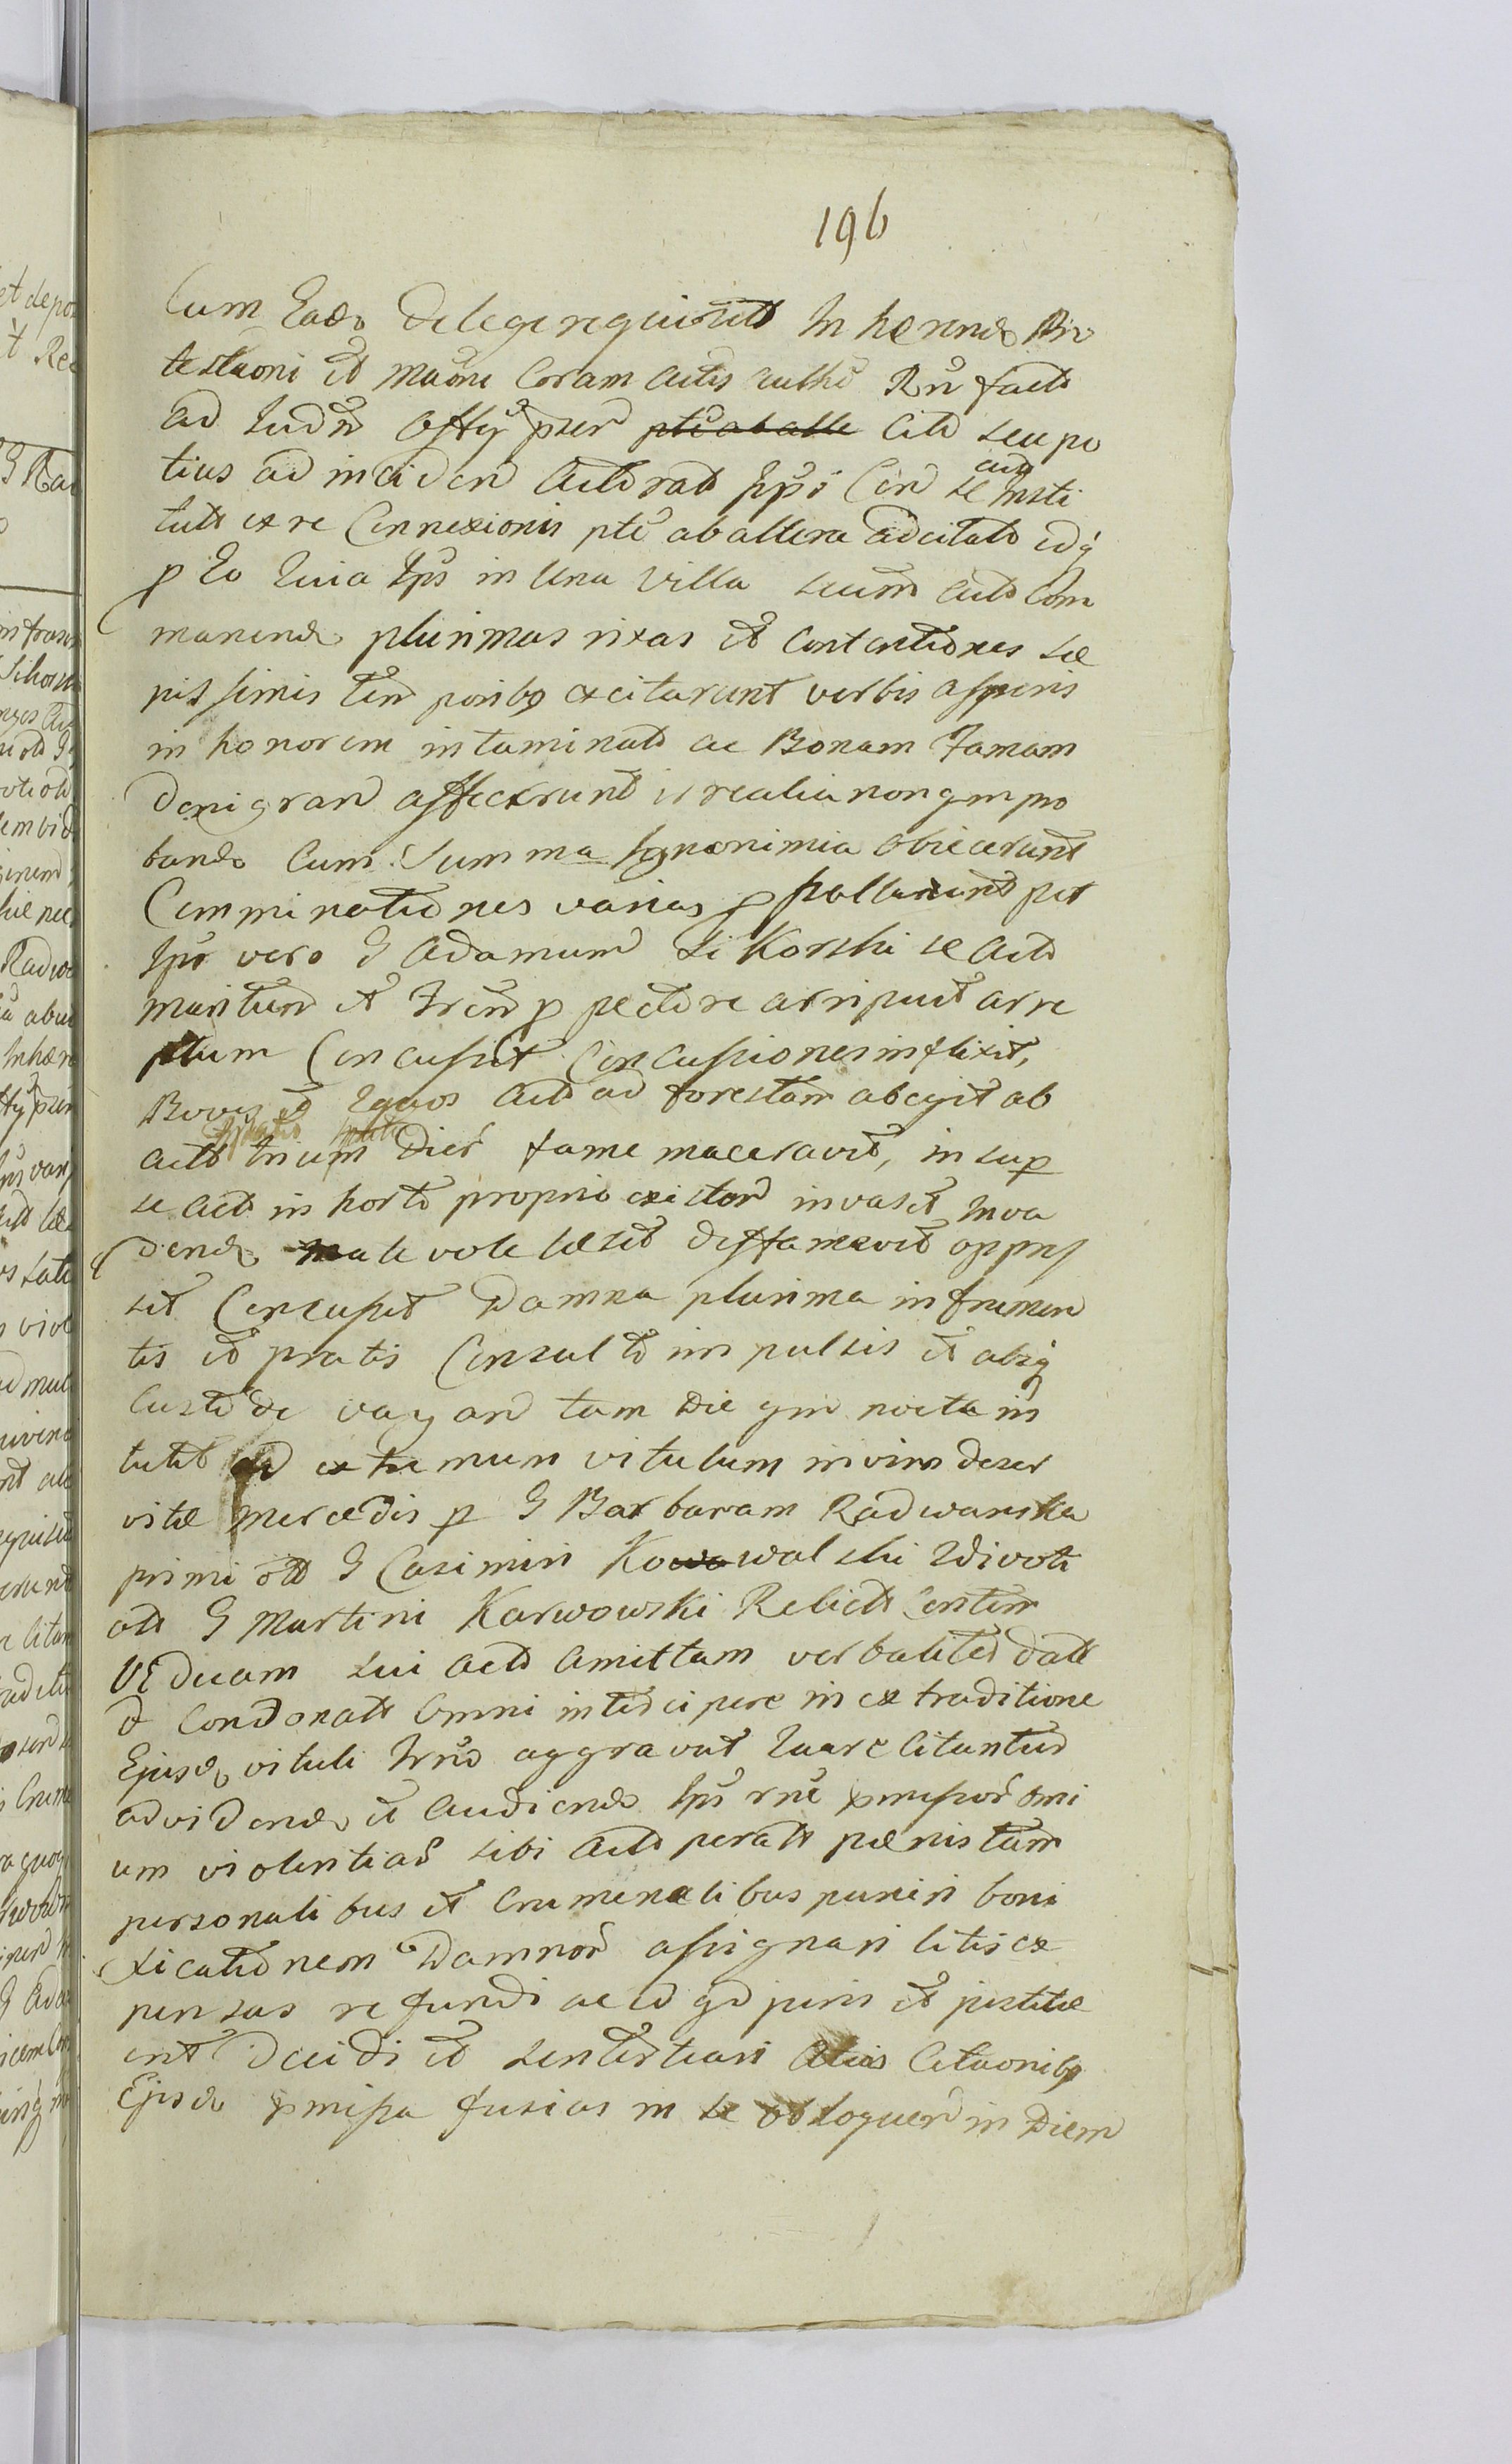 196
Cum Ead de lege requisitt In hærend Pro
testaoni et maoni Coram actis authē Rn̄ factt
ad Judm Offy pser ptē ab alle Citt seu po
tius ad inciden Actorat Ipsi Con se act Insti
tutt ex re Connexionis ptē ab altera adcitatt idq
p Eo Quia Ips in Una Villa secum Acto Com
manend plurimas rixas et Contentiones sæ
pissimis tem poribq excitarunt verbis asperis
in honorem intaminatt ac Bonam Famam
denigran affecerunt irrealia non qm pro
band Cum Summa Ignonimia obiecerunt
Comminationes varias p pollarunt per
Ips vero G Adamum Sikorski se Acto
maritum et Frem p pectore arripuit arre
ptum Concussit Concussiones inflixit,
Boves et Equos Acto ad forestam abegit ab
actt spatio trium dier fame maceravit, in sup
se Acto in horto proprio existen invasit Inva
dend male vole læsit diffamavit oppres
sit Concussit Damna plurima in frumen
tis et pratis Consulto im pulsis et absq
Custode vagan tam Die qm nocte in
tulit ad extremum vitulum in vim deser
vitæ mercedis p G Barbaram Radwanska
primi ott G Casimiri Kowalski 2divoti
ott G Martini Karwowski Relictt Conterm
Viduam sui Acto Amittam verbaliter datt
et Condonatt Omni intercipere in extraditione
Ejusd vituli Frm aggravat Quare Citantur
ad vidend et Audiend Ips rne pmissor omi
um violentiar sibi Acto peratt pænis tam
personalibus et Criminalibus puniri boni
ficationem Damnor assignari litis ex
pensas refundi ac id qd juris et justitiæ
erit decidi et sententiari Aliis Citaonibq
Ejusd pmissa fusius in se obloquen in Diem